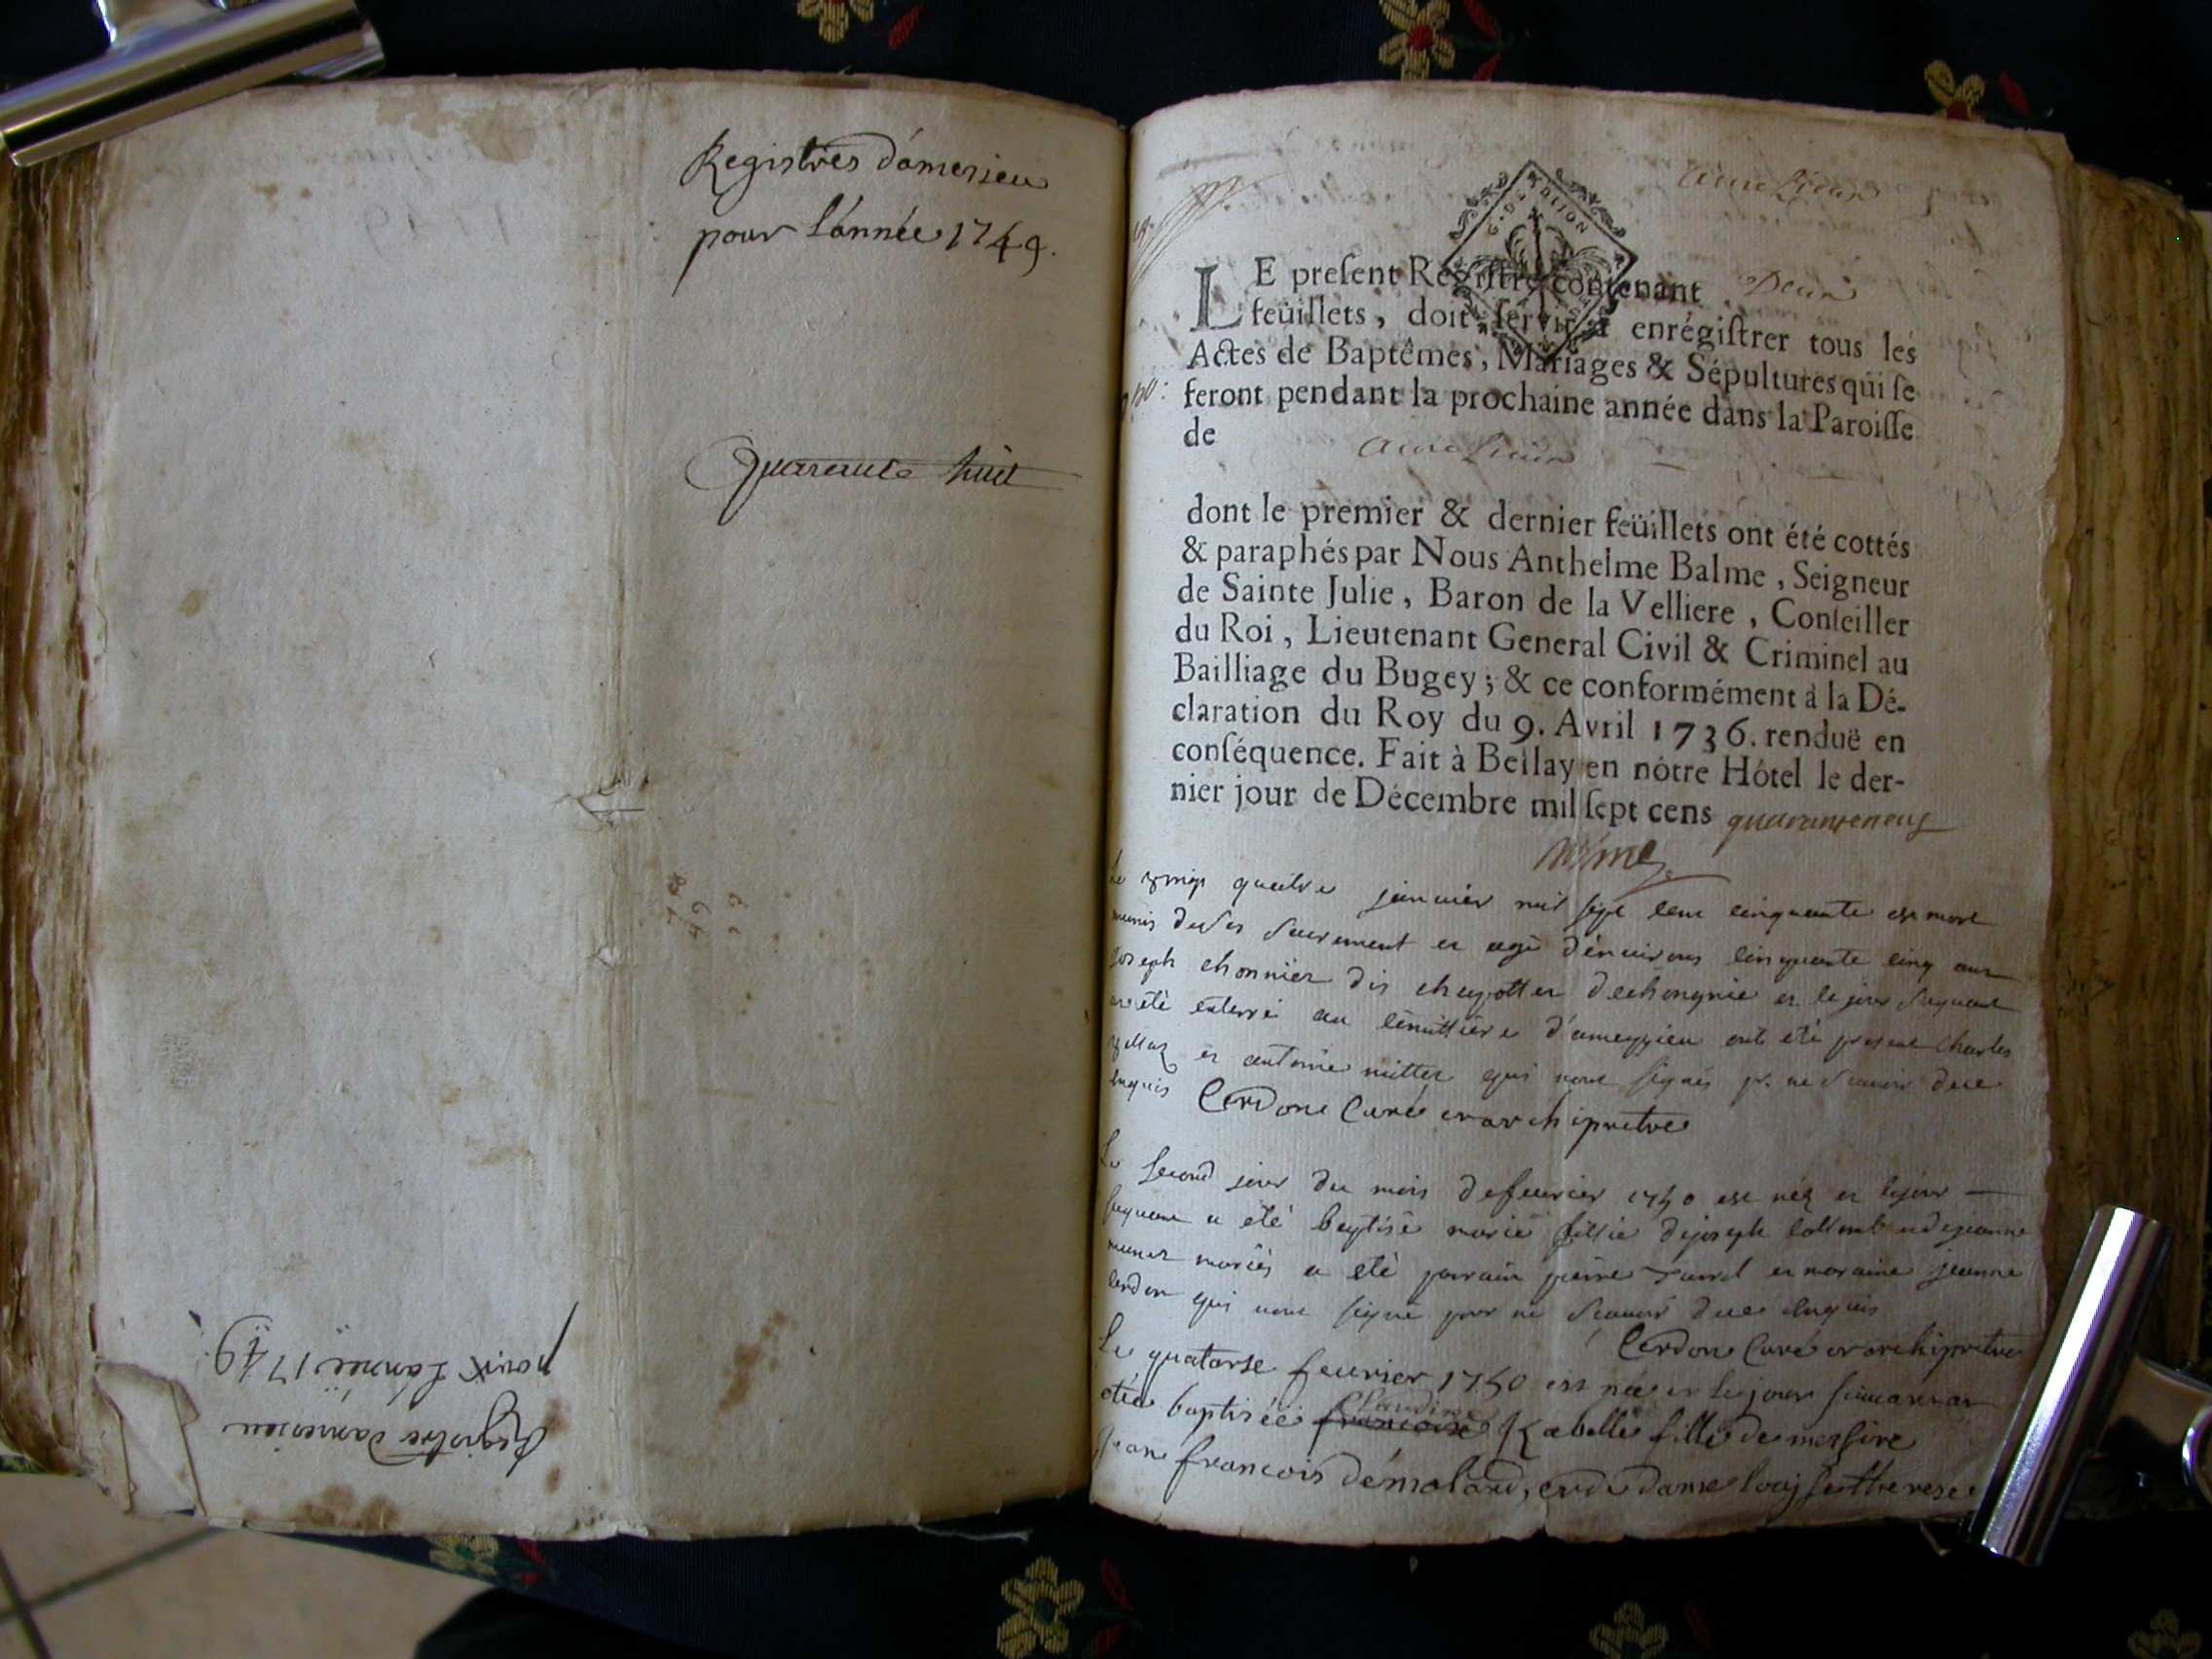 Registres d'amerieu
pour l'année 1749.
Quarante huit
Registre damerieu
pour L'année 1749
G·D·DE DIION
LE preſent Regiſtre contenant Deux
feüillets, doit ſervir à enrégiſtrer tous les
Actes de Baptêmes, Mariages & Sépultures qui ſe
feront pendant la prochaine année dans la Paroiſſe
de
dont le premier & dernier feüillets ont été cottés
& paraphés par Nous Anthelme Balme, Seigneur
de Sainte Julie, Baron de la Velliere, Conſeiller
du Roi, Lieutenant General Civil & Criminel au
Bailliage du Bugey; & ce conformément à la Dé-
claration du Roy du 9. Avril 1736. renduë en
conſéquence. Fait à Bellay en nôtre Hôtel le der-
nier jour de Décembre mil ſept cens quaranteneuf
Le vingt quatre janvier mil sept cent cinquante est mort
munis de ses sacrement et agé d'environs cinquante cinq ans
joseph chonnier dit et le jour suyvant
a eté enterré au cémittière d'ameyzieu ont été present Charles
et antoine mittez qui n'ont signés pr. ne scavoir de ce
enquis Cerdon Curé et archipretre
Le second jour du mois de feuvrier 1750 est néz et lejour
suyvant a eté baptisé marie fillie de joseph et de jeanne
mariés a eté parrain pierre et maraine jeanne
cerdon qui n'ont signé pour ne scavoir de ce enquis
Cerdon Curé et archipretre
Le quatorse feurier 1750 est née et le jour suivant at
étée baptisée francoise Claudine Isabelle fille de messire
Jean francois démolard, et de dame louise therese